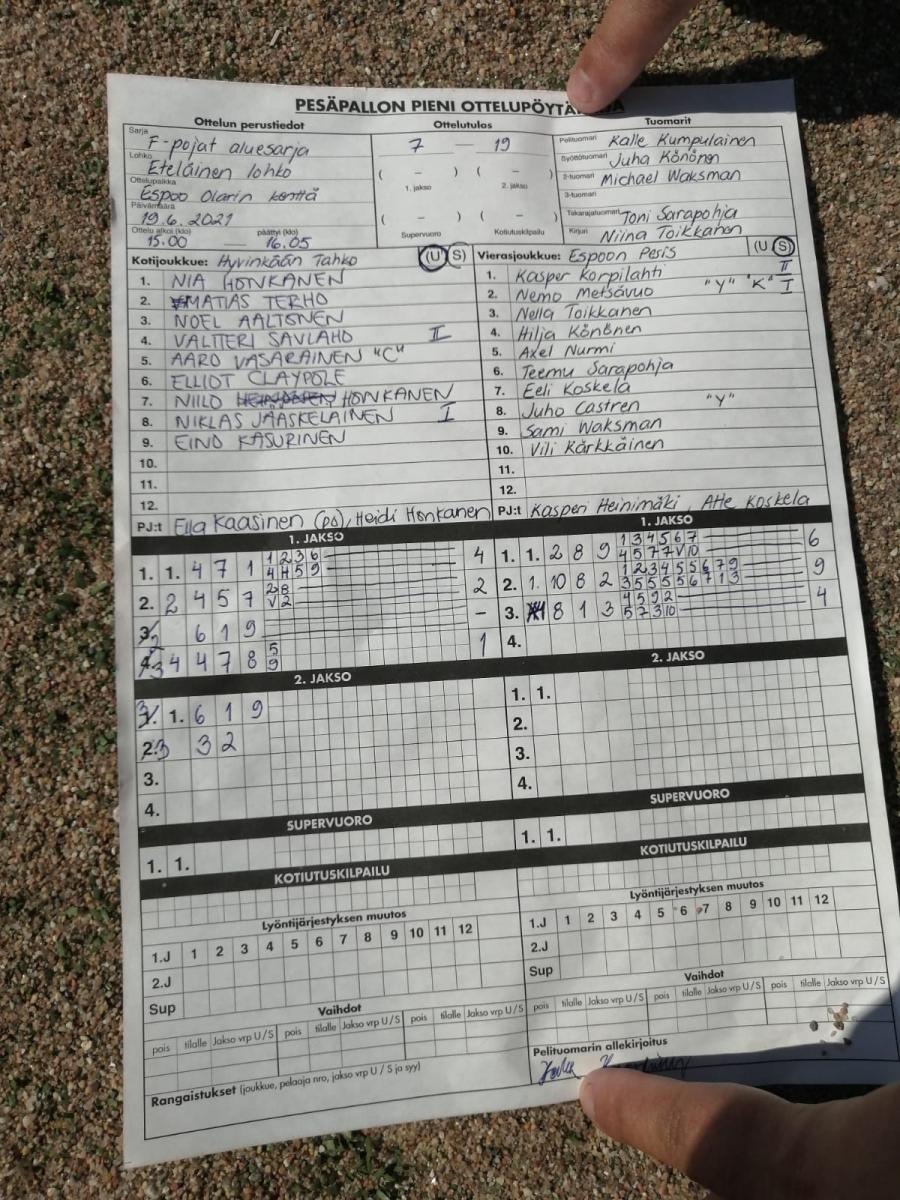 PESÄPALLON PIENI OTTELUPÖYTÄ
Ottelun perustiedot
Sarja
F-pojat aluesarja
Lohko
Eteläinen lohko
Ottelupaikka
Espoo Olarin kenttä
Päivämäärä
19.6.2021
Ottelu alkoi (klo) päättyi (klo)
15.00 — 16.05
Ottelutulos
7 — 19
( – ) ( – )
1. jakso 2. jakso
( – ) ( – )
Supervuoro Kotiutuskilpailu
Tuomarit
Pelituomari Kalle Kumpulainen
Syöttötuomari Juha Könönen
2-tuomari Michael Waksman
3-tuomari
Takarajatuomari Toni Sarapohja
Kirjuri Niina Toikkanen
Kotijoukkue: Hyvinkään Tahko (U S)
1. NIA HONKANEN
2. MATIAS TERHO
3. NOEL AALTONEN
4. VALTTERI SAVLAHO II
5. AARO VASARAINEN "C"
6. ELLIOT CLAYPOLE
7. NIILO HONKANEN
8. NIKLAS JÄÄSKELÄINEN I
9. EINO KASURINEN
10.
11.
12.
PJ:t Ella Kaasinen (po), Heidi Honkanen
Vierasjoukkue: Espoon Pesis (U S)
1. Kasper Korpilahti II
2. Nemo Metsävuo "Y" "K" I
3. Nella Toikkanen
4. Hilja Könönen
5. Axel Nurmi
6. Teemu Sarapohja
7. Eeli Koskela
8. Juho Castren "Y"
9. Sami Waksman
10. Vili Kärkkäinen
11.
12.
PJ:t Kasperi Heinimäki, Atte Koskela
1. JAKSO
1. 1. 4 7 1 1 2 3 6 4
4 H 5 9
2. 2 4 5 7 2 8 2
V 2
3. 2 6 1 9 –
4. 3 4 4 7 8 5 1
9
1. JAKSO
1. 1. 2 8 9 1 3 4 5 6 7 6
4 5 7 7 V 10
2. 1. 10 8 2 1 2 3 4 5 5 6 7 9 9
3 5 5 5 5 6 7 1 3
3. 8 1 3 4 5 9 2 4
5 7 3 10
4.
2. JAKSO
3. 1. 6 1 9
2. 3 3 2
3.
4.
2. JAKSO
1. 1.
2.
3.
4.
SUPERVUORO
1. 1.
SUPERVUORO
1. 1.
KOTIUTUSKILPAILU
KOTIUTUSKILPAILU
Lyöntijärjestyksen muutos
1.J 1 2 3 4 5 6 7 8 9 10 11 12
2.J
Sup
Lyöntijärjestyksen muutos
1.J 1 2 3 4 5 6 7 8 9 10 11 12
2.J
Sup
Vaihdot
pois tilalle Jakso vrp U / S pois tilalle Jakso vrp U / S pois tilalle Jakso vrp U / S
Vaihdot
pois tilalle Jakso vrp U / S pois tilalle Jakso vrp U / S pois tilalle Jakso vrp U / S
Rangaistukset (joukkue, pelaaja nro, jakso vrp U / S ja syy)
Pelituomarin allekirjoitus